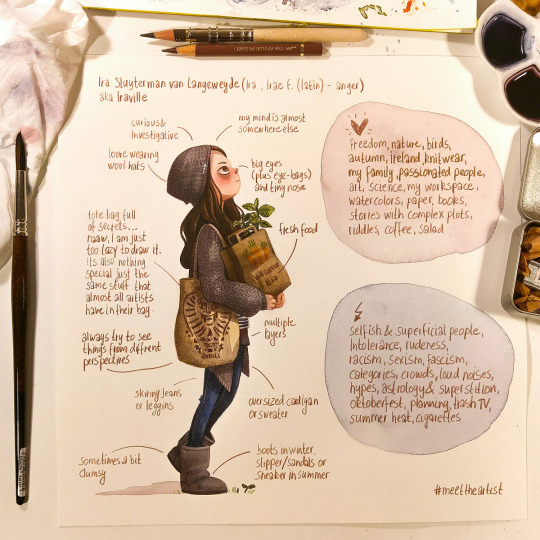 Ira Sluyterman van Langeweyde (Ira, Irae F. (latin) - anger)
aka Iraville
curious &
investigative
my mind is almost
somewhere else
love wearing
wool hats
big eyes
(plus eye-bags)
and tiny nose
tote bag full
of secrets...
naaw, I am just
too lazy to draw it.
its also nothing
special just the
same stuff that
almost all artists
have in their bag.
fresh food
always try to see
things from diffrent
perspectives
multiple
layers
skinny jeans
or leggins
oversized cadigan
or sweater
sometimes a bit
clumsy
boots in winter,
slipper/sandals or
sneaker in summer
freedom, nature, birds,
autumn, ireland, knitwear,
my family, passionated people,
art, science, my workspace,
watercolors, paper, books,
stories with complex plots,
riddles, coffee, salad
selfish & superficial people,
Intolerance, rudeness,
racism, sexism, fascism,
categories, crowds, loud noises,
hypes, astrology & superstition,
oktoberfest, planning, trash TV,
summer heat, cigarettes
#meettheartist